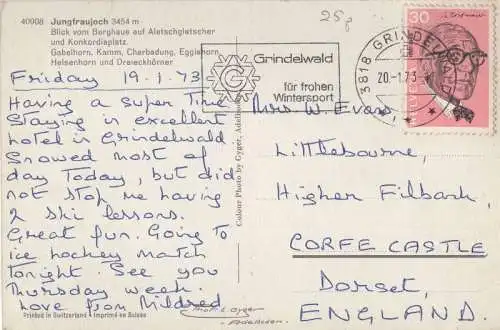 40908 Jungfraujoch 3454 m
Blick vom Berghaus auf Aletschgletscher
und Konkordiaplatz.
Gabelhorn, Kamm, Cherbadung, Eggishorn,
Helsenhorn und Dreieckhörner
Friday 19.1.73
Having a super Time
Staying in excellent
hotel in Grindelwald
Snowed most of
day Today, but did
not stop me having
2 ski lessons.
Great fun. Going To
ice hockey match
tonight. See you
Thursday week.
Love from Mildred
Printed in Switzerland - Imprimé en Suisse
Colour Photo by Gyger, Adelboden
25p
Grindelwald
für frohen
Wintersport
3818 GRINDELWALD
20.-1.73
30
HELVETIA
Mrs W Evans,
Littlebourne,
Higher Filbank,
CORFE CASTLE
Dorset,
ENGLAND.
Phot. E. Gyger
Adelboden